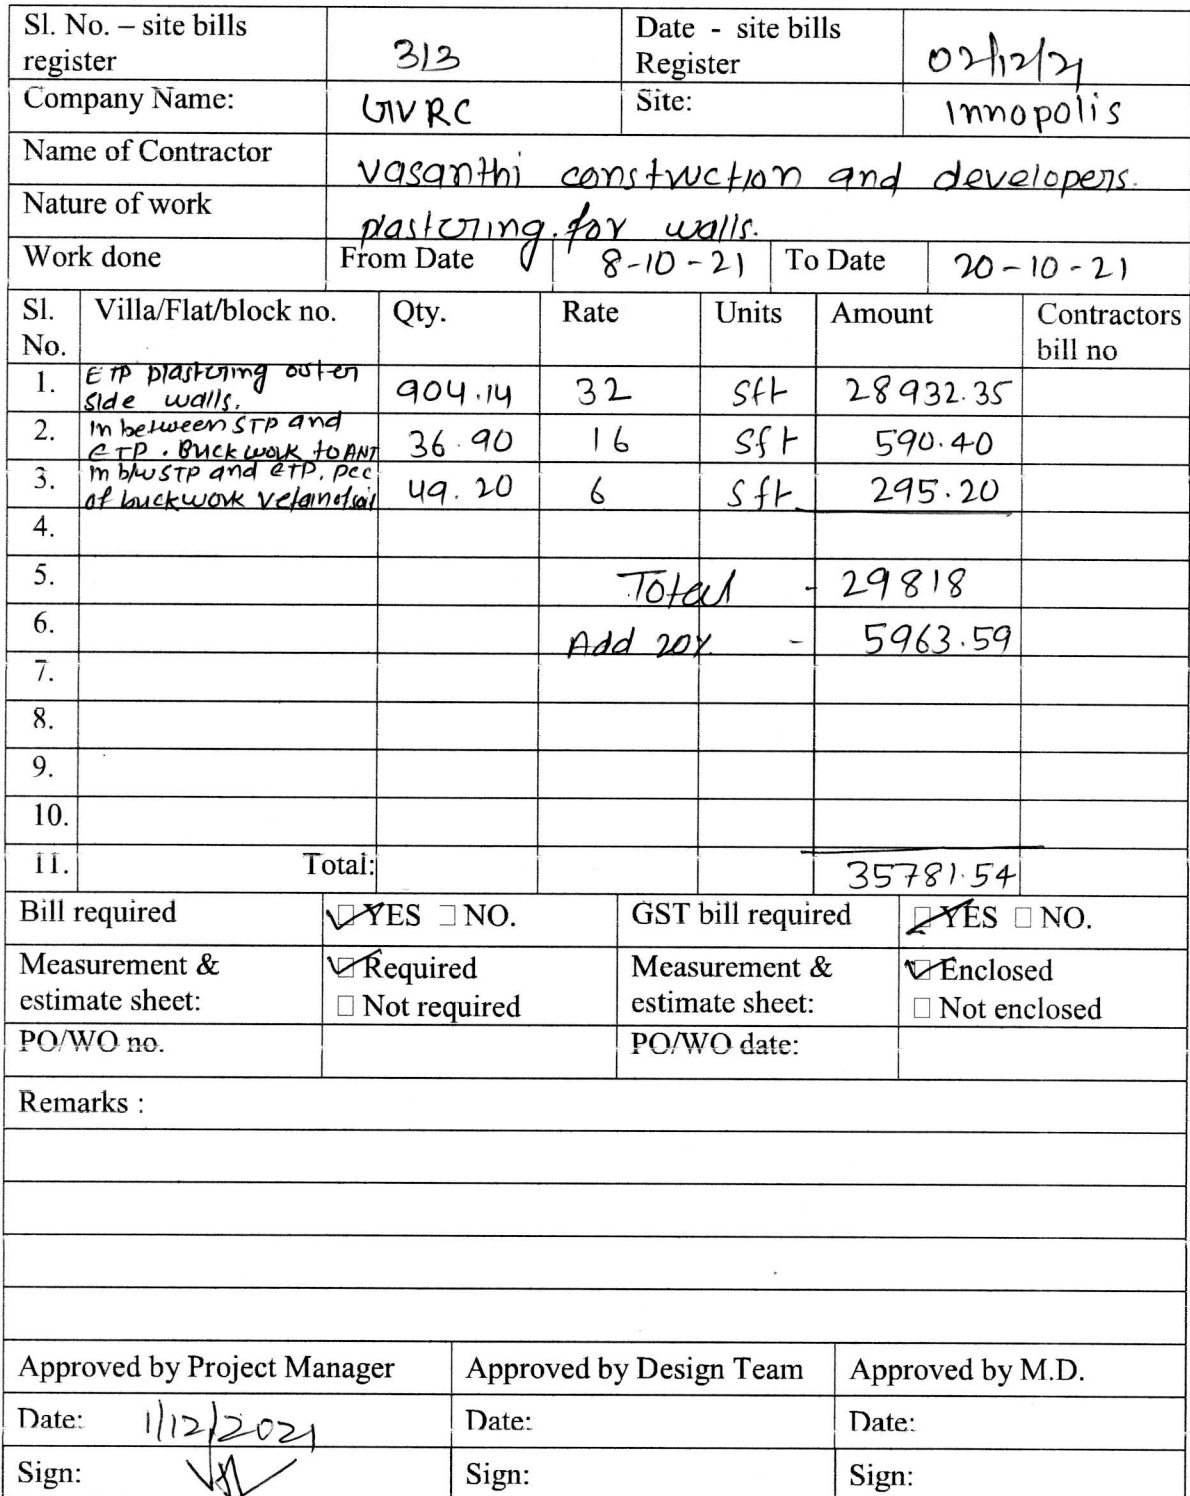 Sl. No. – site bills register 313 Date - site bills Register 02/12/21
Company Name: GVRC Site: Innopolis
Name of Contractor vasanthi construction and developers.
Nature of work plastering for walls.
Work done From Date 8-10-21 To Date 20-10-21
Sl. No. Villa/Flat/block no. Qty. Rate Units Amount Contractors bill no
1. ETP plastering outer side walls. 904.14 32 sft 28932.35
2. In between STP and ETP. Brick work to 36.90 16 sft 590.40
3. In b/w STP and ETP. pcc of brickwork 49.20 6 sft 295.20
4.
5. Total - 29818
6. Add 20% - 5963.59
7.
8.
9.
10.
11. Total: 35781.54
Bill required YES NO. GST bill required YES NO.
Measurement & estimate sheet: Required Not required Measurement & estimate sheet: Enclosed Not enclosed
PO/WO no. PO/WO date:
Remarks :
Approved by Project Manager Approved by Design Team Approved by M.D.
Date: 1/12/2021 Date: Date:
Sign: Sign: Sign: